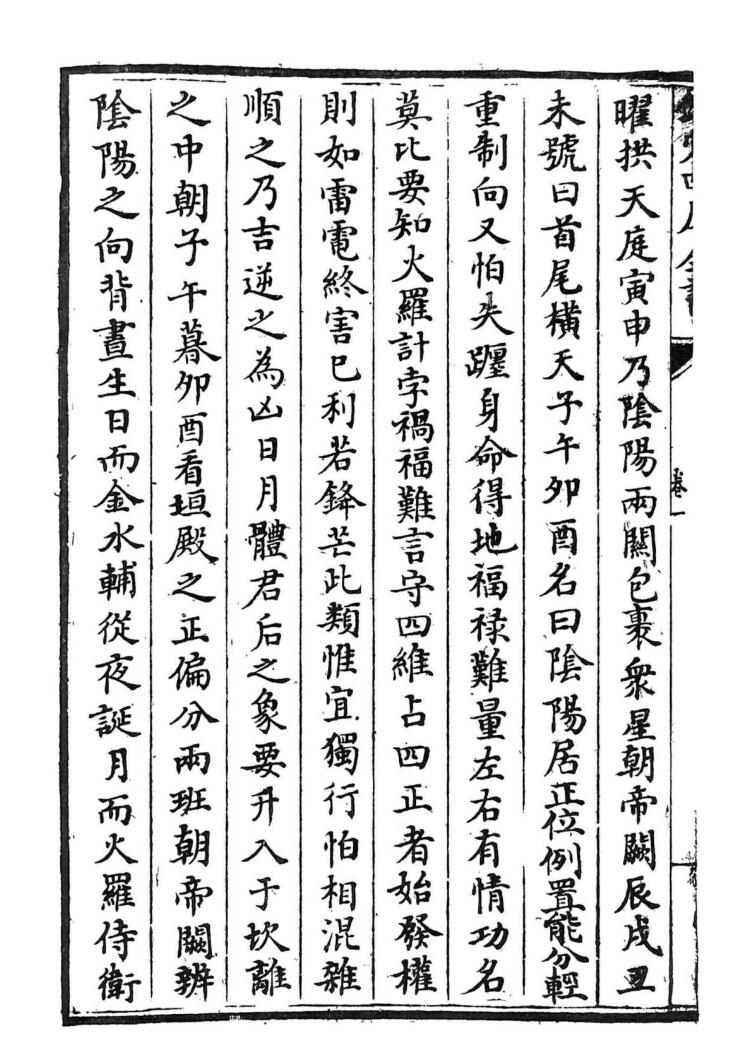 欽定四庫全書
卷一
曜拱天庭寅申乃陰陽兩關包裹衆星朝帝闕辰戌丑
未號曰首尾橫天子午卯酉名曰陰陽居正位例置能分輕
重制向又怕失躔身命得地福祿難量左右有情功名
莫比要知火羅計孛禍福難言守四維占四正者始發權
則如雷電終害已利若鋒芒此類惟宜獨行怕相混雜
順之乃吉逆之為凶日月體君后之象要升入于坎離
之中朝子午暮卯酉看垣殿之正偏分兩班朝帝闕辨
陰陽之向背晝生日而金水輔從夜誕月而火羅侍衛